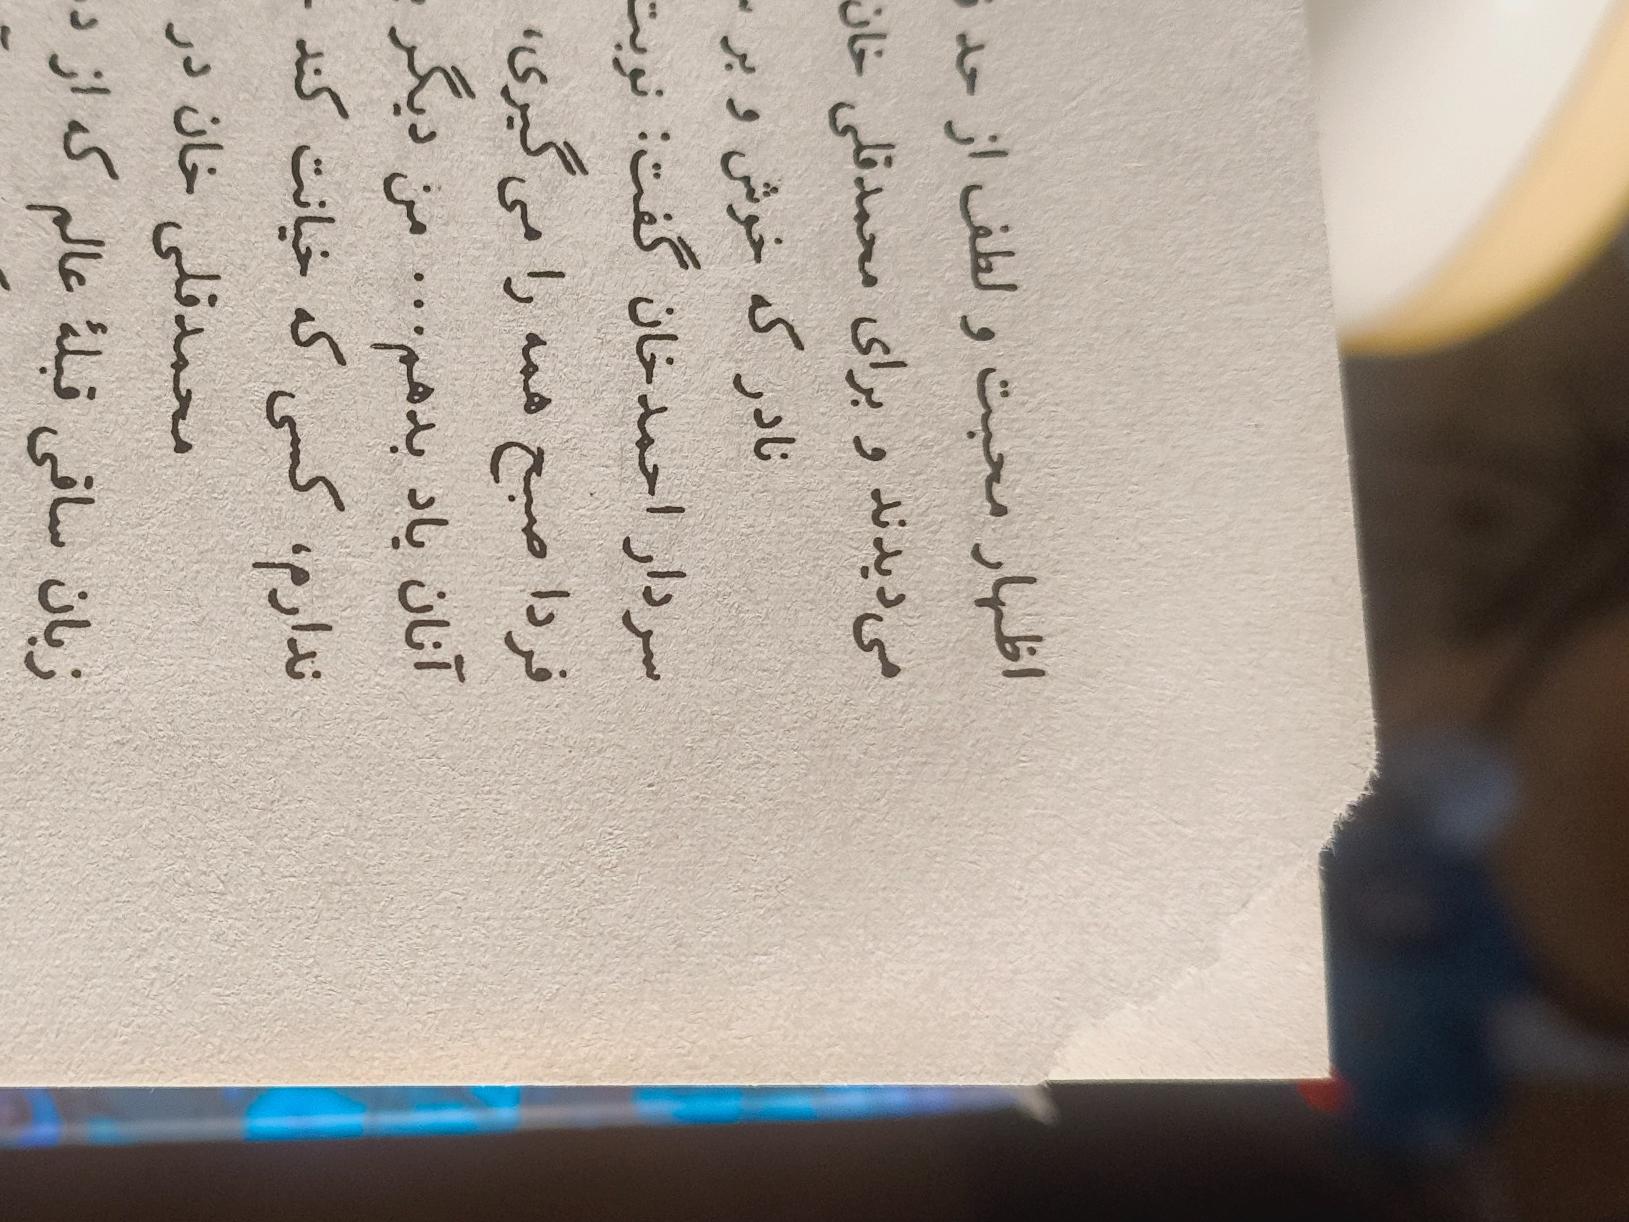 اظهار محبت و لطف از حد
می‌دیدند و برای محمدقلی خان
نادر که خوش و بر
سردار احمدخان گفت: نوبت
فردا صبح همه را می‌گیری،
آنان یاد بدهم... من دیگر
ندارم، کسی که خیانت کند
محمدقلی خان در
زبان ساقی قبلهٔ عالم که از